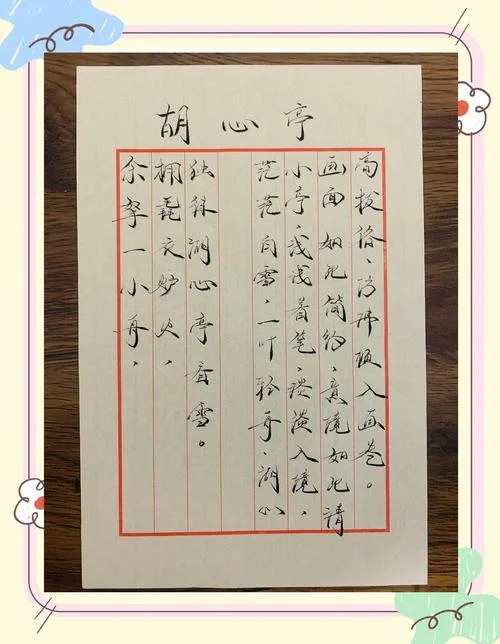 胡心亭
余拏一小舟,
拥毳衣炉火,
独往湖心亭看雪。
茫茫白雪,一叶轻舟,湖心
小亭,浅浅着笔,淡淡入境,
画面如此简约,意境如此清
高拔俗,仿佛顿入画卷。